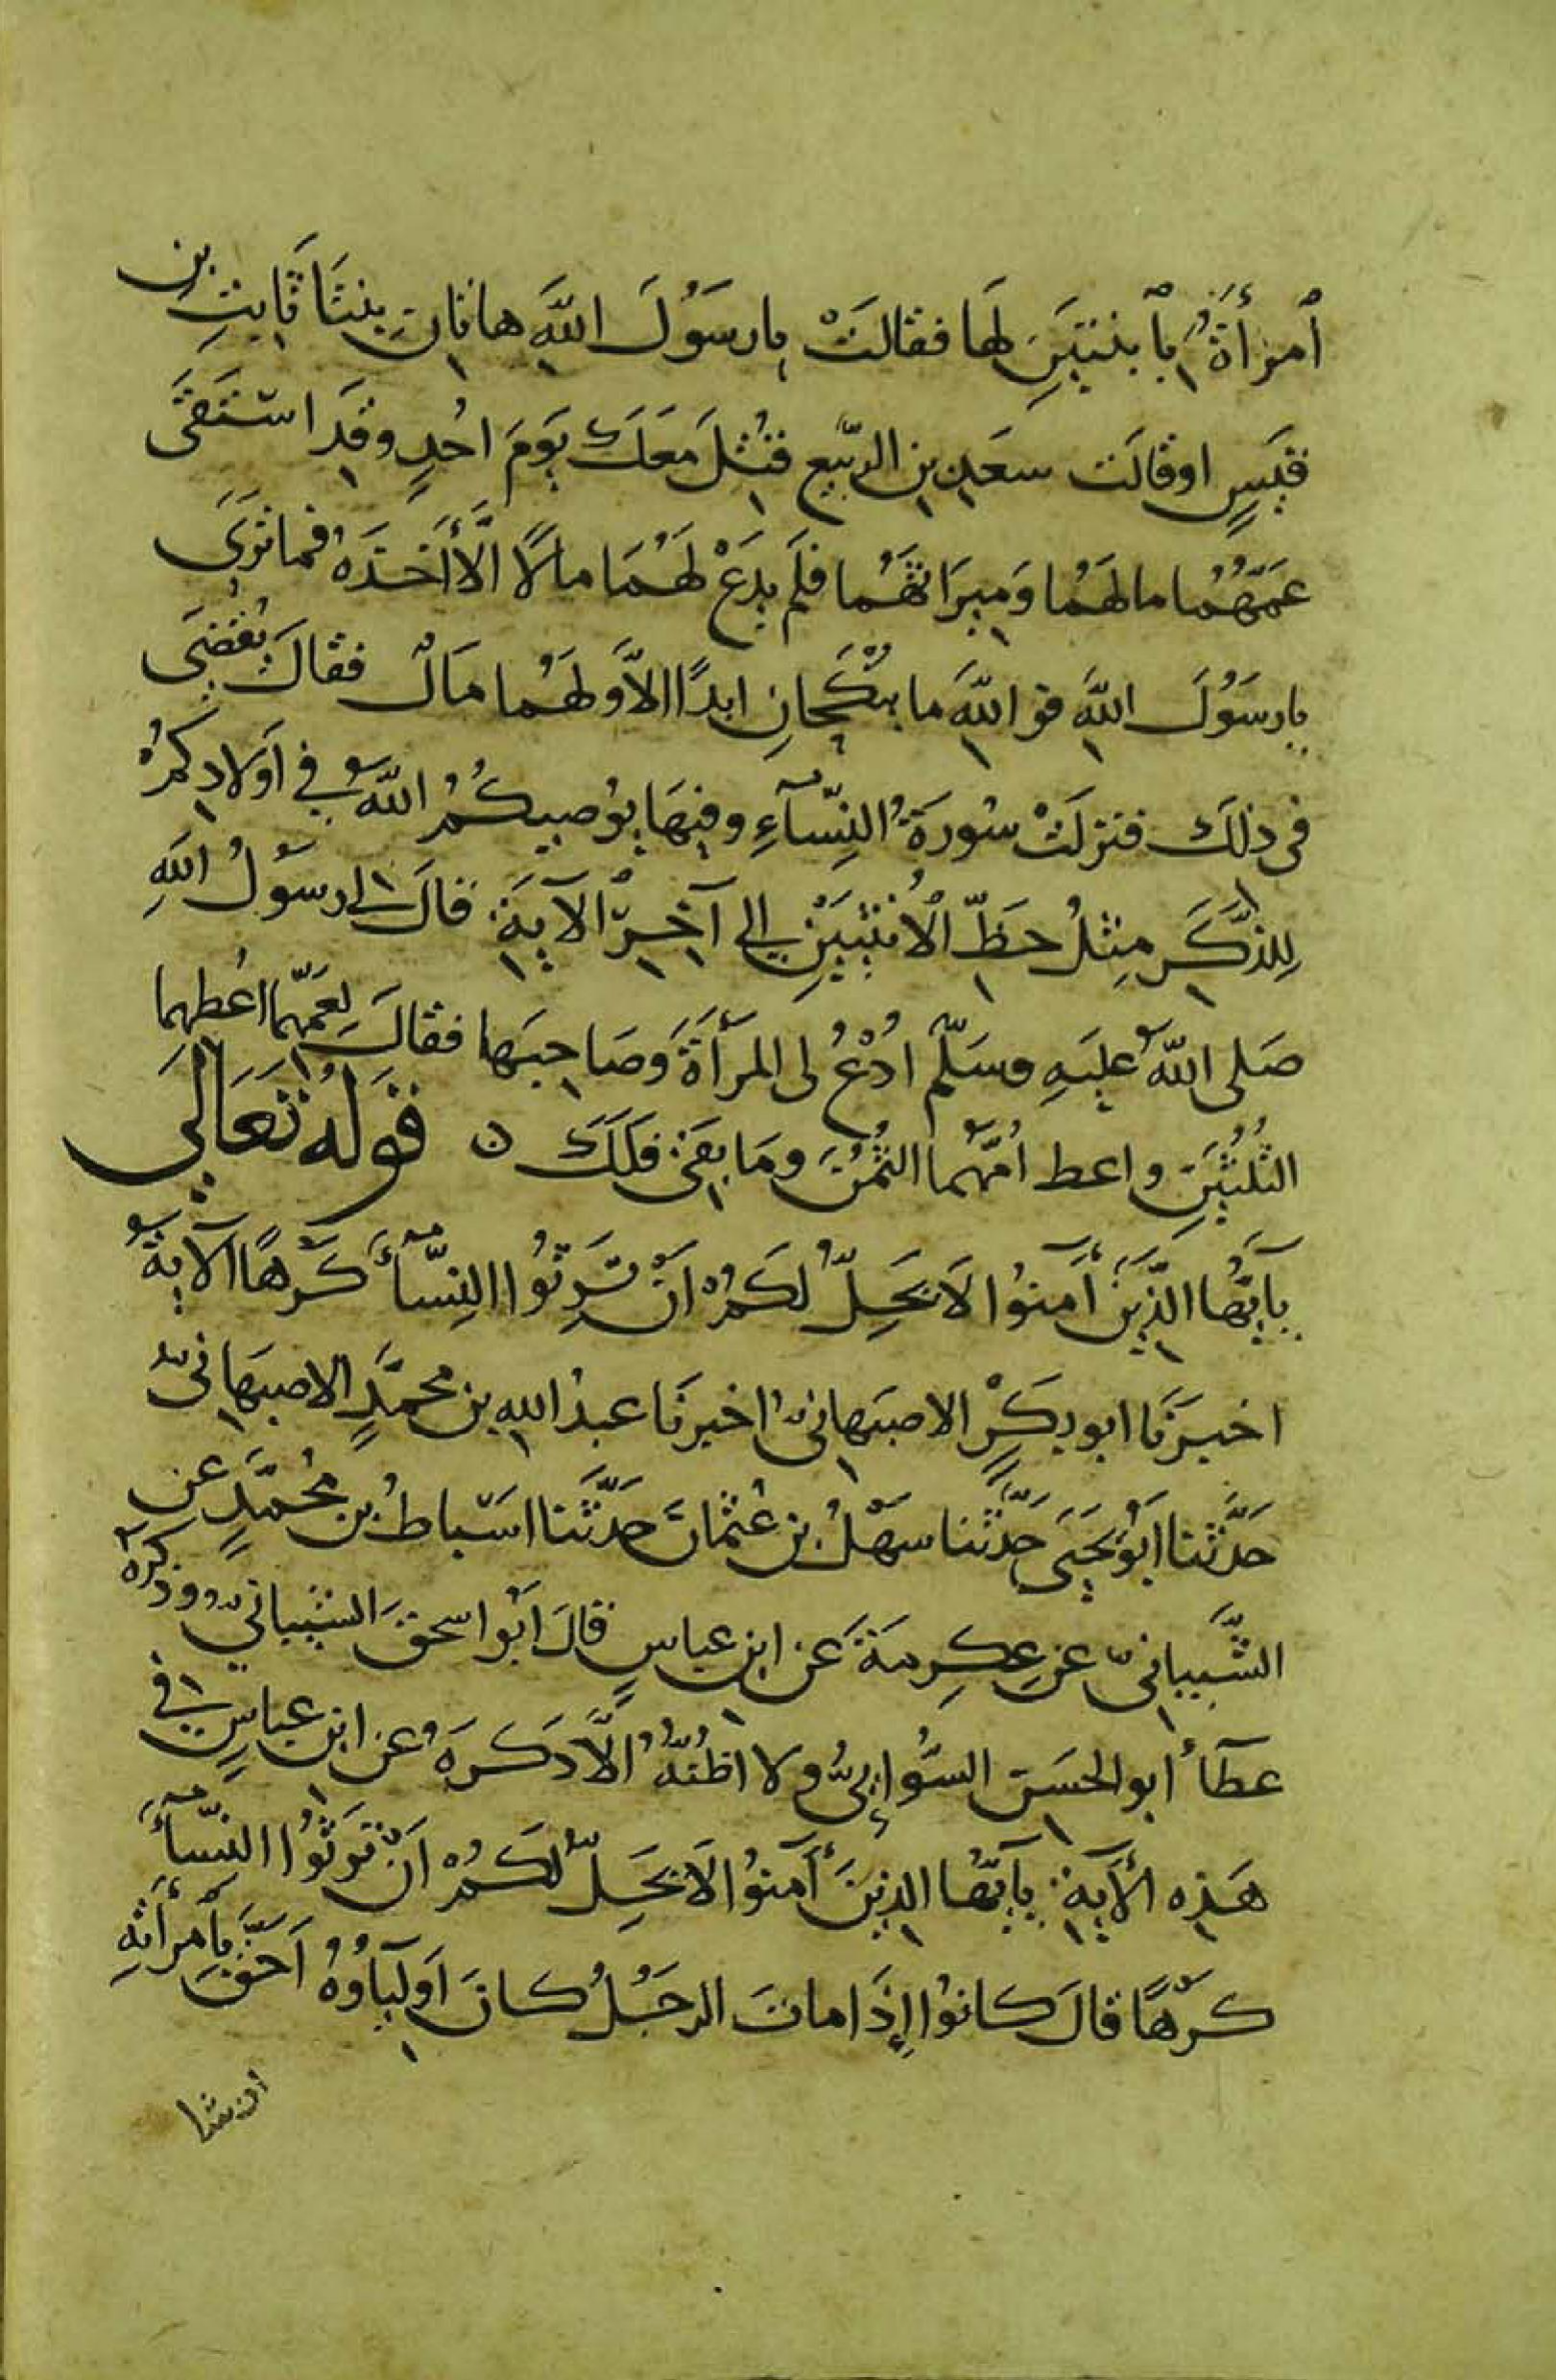 ٱمرأَةٌ بٱبنتَينِ لَها فقالَتْ يا رسَوُلَ اللَّهِ هاتانِ بِنتَا ثَابِتِ بنِ
قَيسٍ او قالَت سَعَدِ بنِ الرّبَيعِ قُتِلَ مَعَكَ يَومَ احُدٍ وقَد اسْتَفَى
عَمَّهُمُا مالهَمُا وَميِرَاثهَمُا فلَم يدَعْ لَهُمَا مالاً الَّا أَخَذهَ فما تَرَى
يا رسَوُلَ اللَّهِ فو اللَّهِ ما يُنْكَحَانِ ابدًا الاَّ ولهَمُا مَالٌ فقالَ يُقضىَ
فى ذلكَ فنزلَتْ سُورةَُ النِسّآءِ وفيِهَا يوُصيِكُمُ اللَّهُ فِي اَولادِكمُْ
لِلذَّكَرِ مِثلُ حَظِّ الْأُنثَيَيْنِ إلى آخِرِ الآيةَِ فقالَ لى رسَوُلُ اللهِ
صَلى اللَّهُ عليَهِ وسَلَّم ادُْعُ لى المرَأَةَ وَصَاحِبَها فقالَ لِعَمهِّما اعُطهِما
الثلُثُيَنِ واعطِ امُهَّما الثُمُنَ ومَا بقَى فلَكَ ۞ قَولهُُ تعَاَلىَ
يآ ايَهُّا الذَّينَ أَمَنوُا لاَ يَحِلُّ لكَمُْ انَْ تَرِثوُا النِسّآءَ كَرْهًا الآيةَ
اخبرَنَا ابو بكَرٍْ الاصبَهانىُّ اخبرنَا عبدُ اللهِ بن محمَّدٍ الاصبهَانىُّ
حَدَّثَنا ابَوُ يَحيىَ حَدَّثَنا سَهْلُ بن عُثمانَ حَدَّثَنا اسَْباطُ بن مُحُمَّدٍ عنِ
الشَّيبانىِّ عن عِكرِمةَ عَن ابنِ عباسٍ قالَ ابَوُ اسحقَ الشيبانىُّ وذَكرَهُ
عطَآءُ ابو الحسَن السُّوائىُّ ولا اظُنهُُّ الَّا ذكَرَهُ عن ابنِ عباسٍ فى
هَذِهِ الأَيةِ يآ ايَهُّا الذينَ أَمَنوُا لاَ يَحِلُّ لكَمُْ انَْ تَرِثوُا النِسّآءَ
كَرْهًا قالَ كانوُا إِذَا ماتَ الرجَلُ كانَ اَوليَآوُهُ اَحَقَّ بٱمرأَتهِِ
ان شا